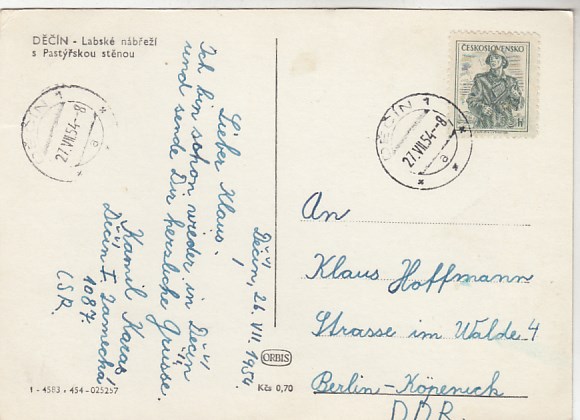 DĚČÍN - Labské nábřeží
s Pastýřskou stěnou
Děčín, 26. VII. 1954.
Lieber Klaus!
Ich bin schon wieder in Děčín
und sende Dir herzliche Grüsse.
Kamil
Děčín I. Zámecká
1087.
ČSR.
ČESKOSLOVENSKO
DĚČÍN 1
27.VII.54-8
a
DĚČÍN 1
27.VII.54-8
a
An
Klaus Hoffmann
Strasse im Walde 4
Berlin-Köpenick
DDR.
ORBIS
1 - 4583 - 454 - 025257
Kčs 0,70